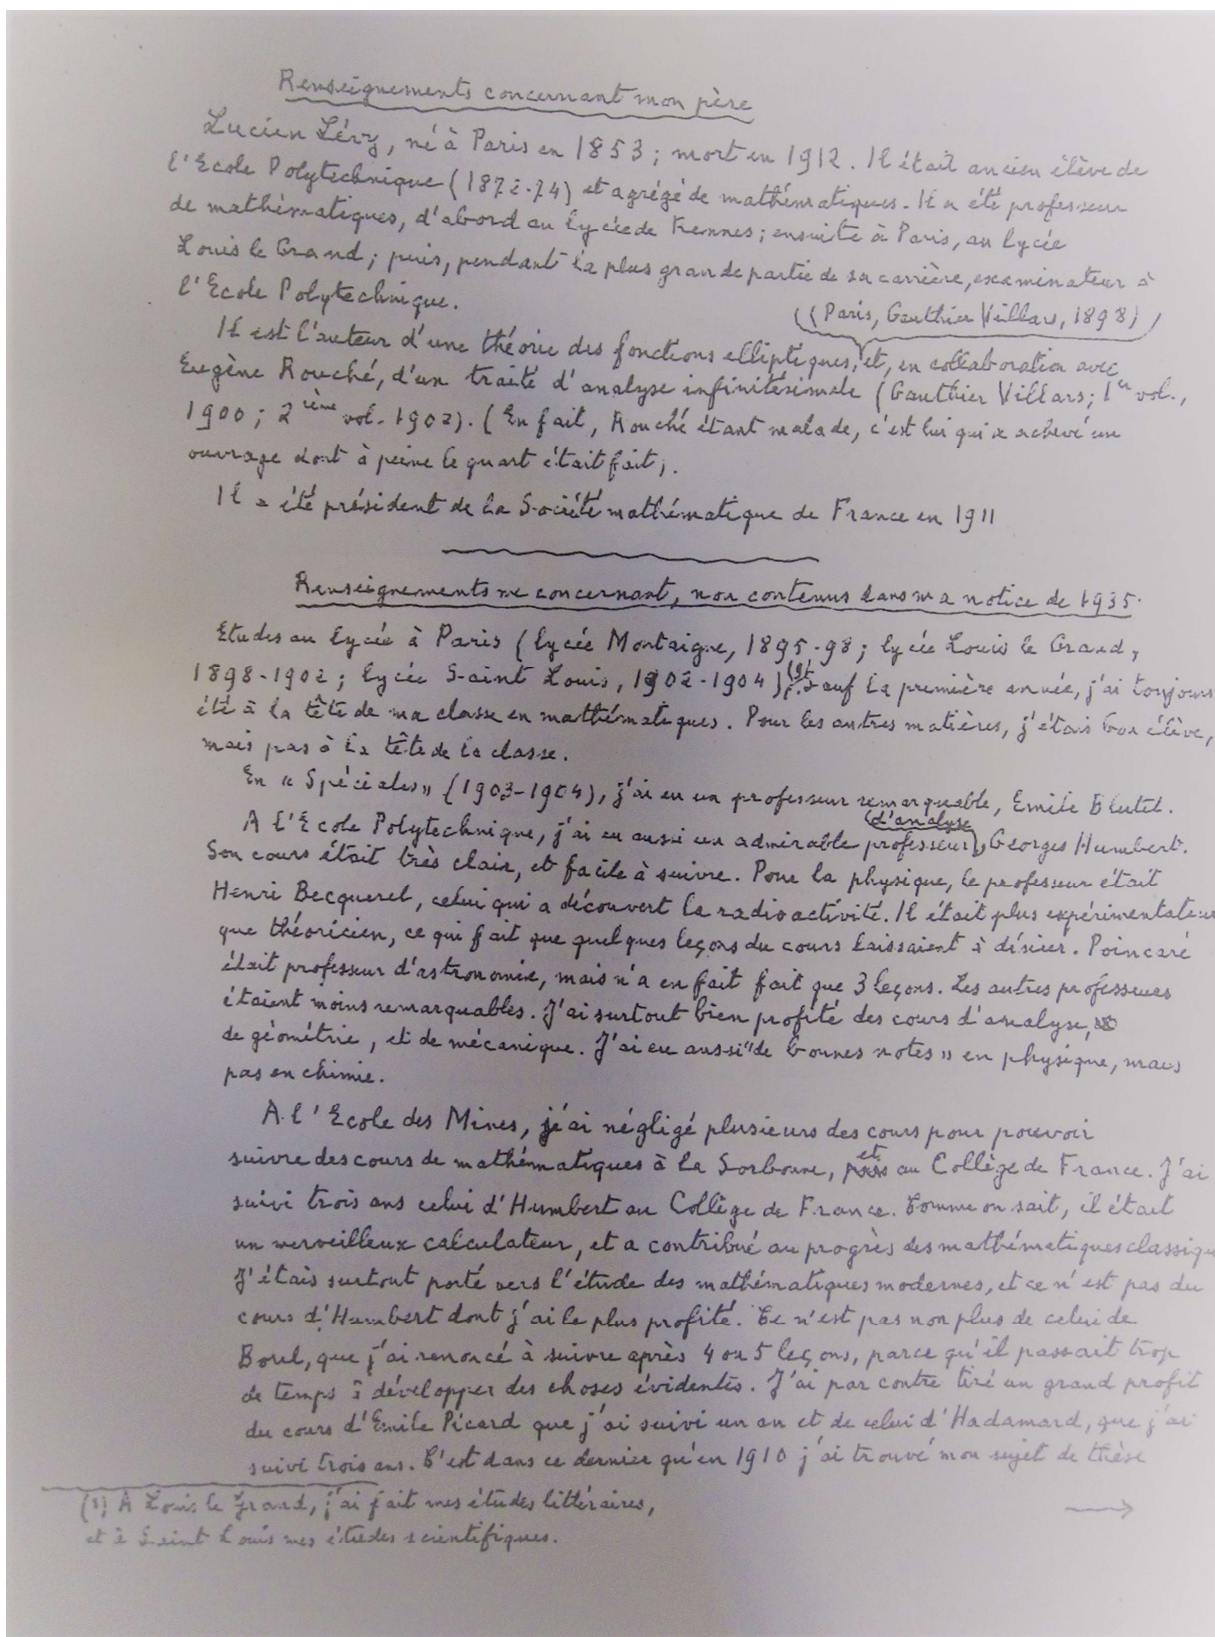 Renseignements concernant mon père
Lucien Lévy, né à Paris en 1853 ; mort en 1912. Il était ancien élève de
l'Ecole Polytechnique (1872-74) et agrégé de mathématiques. Il a été professeur
de mathématiques, d'abord au lycée de Rennes ; ensuite à Paris, au lycée
Louis le Grand ; puis, pendant la plus grande partie de sa carrière, examinateur à
l'Ecole Polytechnique.
(Paris, Gauthier Villars, 1898)
Il est l'auteur d'une théorie des fonctions elliptiques, et, en collaboration avec
Eugène Rouché, d'un traité d'analyse infinitésimale (Gauthier Villars ; 1er vol.,
1900 ; 2ième vol. 1902). (En fait, Rouché étant malade, c'est lui qui a achevé un
ouvrage dont à peine le quart était fait).
Il a été président de la Société mathématique de France en 1911
Renseignements me concernant, non contenus dans ma notice de 1935.
Etudes au lycée à Paris (lycée Montaigne, 1895-98 ; lycée Louis le Grand,
1898-1902 ; lycée Saint Louis, 1902-1904)(1). Sauf la première année, j'ai toujours
été à la tête de ma classe en mathématiques. Pour les autres matières, j'étais bon élève,
mais pas à la tête de la classe.
En « Spéciales » (1903-1904), j'ai eu un professeur remarquable, Emile Blutel.
d'analyse
A l'Ecole Polytechnique, j'ai eu aussi un admirable professeur, Georges Humbert.
Son cours était très clair, et facile à suivre. Pour la physique, le professeur était
Henri Becquerel, celui qui a découvert la radioactivité. Il était plus expérimentateur
que théoricien, ce qui fait que quelques leçons du cours laissaient à désirer. Poincaré
était professeur d'astronomie, mais n'a en fait fait que 3 leçons. Les autres professeurs
étaient moins remarquables. J'ai surtout bien profité des cours d'analyse,
de géométrie, et de mécanique. J'ai eu aussi "de bonnes notes" en physique, mais
pas en chimie.
A l'Ecole des Mines, j'ai négligé plusieurs des cours pour pouvoir
suivre des cours de mathématiques à la Sorbonne, et au Collège de France. J'ai
suivi trois ans celui d'Humbert au Collège de France. Comme on sait, il était
un merveilleux calculateur, et a contribué au progrès des mathématiques classiqu
J'étais surtout porté vers l'étude des mathématiques modernes, et ce n'est pas du
cours d'Humbert dont j'ai le plus profité. Ce n'est pas non plus de celui de
Borel, que j'ai renoncé à suivre après 4 ou 5 leçons, parce qu'il passait trop
de temps à développer des choses évidentes. J'ai par contre tiré un grand profit
du cours d'Emile Picard que j'ai suivi un an et de celui d'Hadamard, que j'ai
suivi trois ans. C'est dans ce dernier qu'en 1910 j'ai trouvé mon sujet de thèse
(1) A Louis le Grand, j'ai fait mes études littéraires,
et à Saint Louis mes études scientifiques.